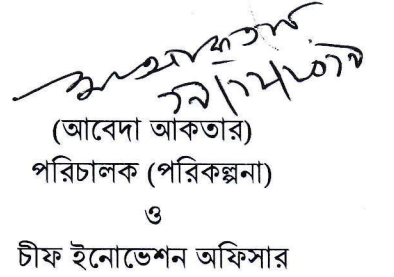 (আবেদা আকতার)
পরিচালক (পরিকল্পনা)
ও
চীফ ইনোভেশন অফিসার